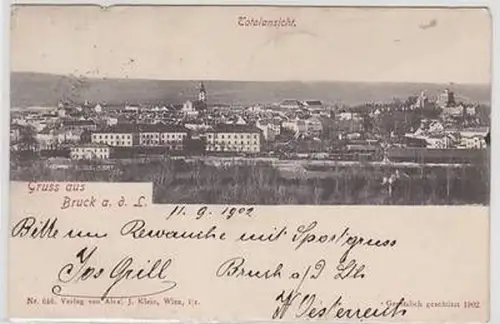 Totalansicht.
Gruss aus
Bruck a. d. L.
11.9.1902
Bitte um Rewanche mit Sportgruss
Jos Grill
Bruck a/d Lth
N Oesterreich
Nr. 646. Verlag von Alex. J. Klein, Wien, I/1.
Gesetzlich geschützt 1902